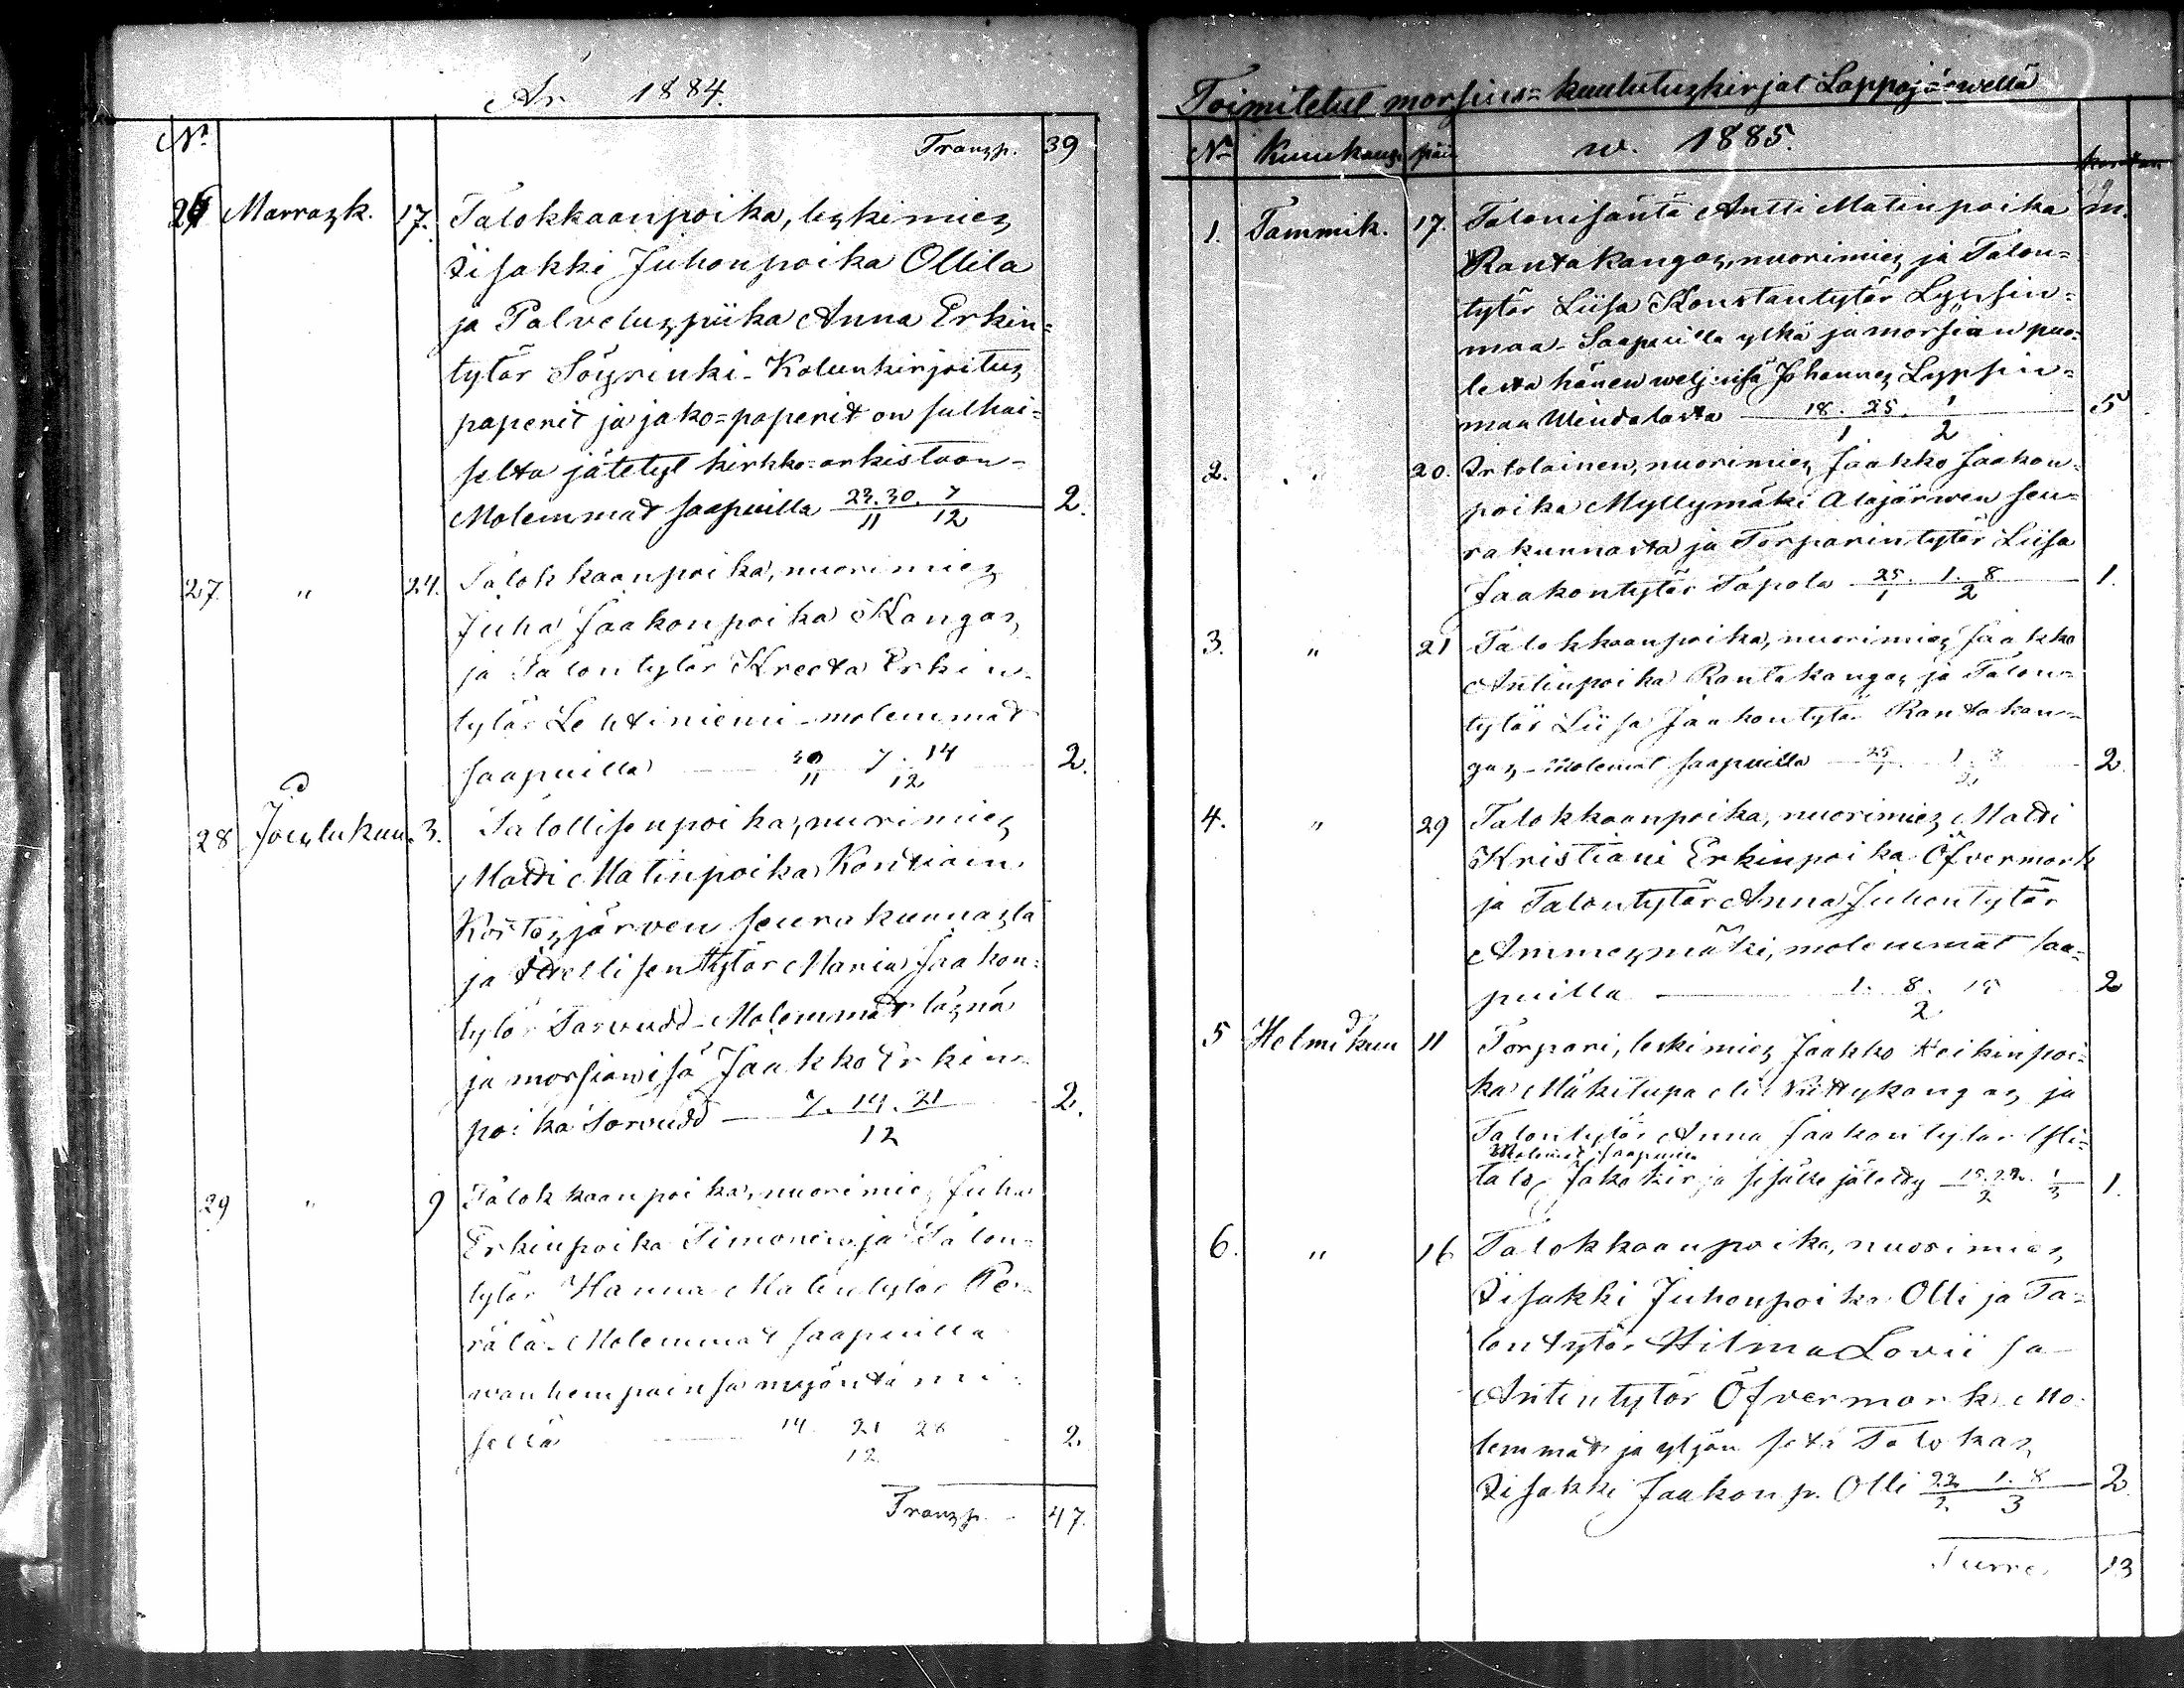 Ar 1884.
No Transp. 39
26 Marrask. 17. Talokkaanpoika, leskimies
Iisakki Juhonpoika Ollila
ja Palveluspiika Anna Erkin=
tytär Söyrinki - Kolunkirjoitus
paperit ja jako=paperit on
selta jätetyt kirkko-arkistoon -
Molemmat saapuilla 23. 30. 7 2.
11 12
27. " 24. Talokkaanpoika, nuorimies
Juha Jaakonpoika Kangas
ja Talontytär Kreeta Erkin=
tytär Lehtiniemi - molemmat
saapuilla 30 7. 14 2.
11 12
28 Joulukuu. 3. Talollisenpoika, nuorimies
Matti Matinpoika
Kortesjärven seurakunnasta
ja tytär Maria Jaakon=
tytär Tarvudd - Molemmat läsnä
ja morsiamisä Jaakko Erkin=
poika Torvudd 7. 14. 21 2.
12
29 " 9 Talokkaanpoika, nuorimies Juha
Erkinpoika Timonen ja Talon=
tytär Hanna Matintytär Pe=
rälä. Molemmat saapuilla
wanhempainsa myöntämi=
sellä 14. 21 28 2.
12
Transp. 47.
Toimitetut morsius=kuulutuskirjat Lappajärwellä
No Kuukaus. päiv w. 1885.
1. Tammik. 17. Talonisäntä Antti Matinpoika
Rantakangas, nuorimies ja Talon=
tytär Liisa Konstantytär Lypsin=
maa - Saapuilla ylkä ja morsian puo=
lesta hänen weljensä Johannes Lypsin=
maa Windalasta 18. 25. 1 5
1 2
2. " 20. Itsolainen, nuorimies Jaakko Jaakon=
poika Myllymäki Alajärwen seu=
rakunnasta ja Torparintytär Liisa
Jaakontytär Tapola 25. 1. 8 1.
1 2
3. " 21 Talokkaanpoika, nuorimies Jaakko
Antinpoika Rantakangas ja Talon=
tytär Liisa Jaakontytär Rantakan=
gas - Molemat saapuilla 25. 1. 8 2
1 2
4. " 29 Talokkaanpoika, nuorimies Matti
Kristiani Erkinpoika Öfvermark
ja Talontytär Anna Juhontytär
Ammesmäki, molemmat saa=
puilla 1. 8. 15 2
2
5 Helmikuu 11 Torpari, leskimies Jaakko Heikinpoi=
ka Mäkitupa eli Niittykangas ja
Talontytär Anna Jaakontytär Yli=
Molemat saapuilla
talo, Jakokirja sisälle jätetty 15. 22. 1 1.
2 3
6. " 16 Talokkaanpoika, nuorimies
Iisakki Juhonpoika Olli ja Ta=
lontytär Hilma Loviisa
Antintytär Öfvermark. Mo=
lemmat ja yljän setä Talokas
Iisakki Jaakonp. Olli 22 1. 8 2
2. 3
13